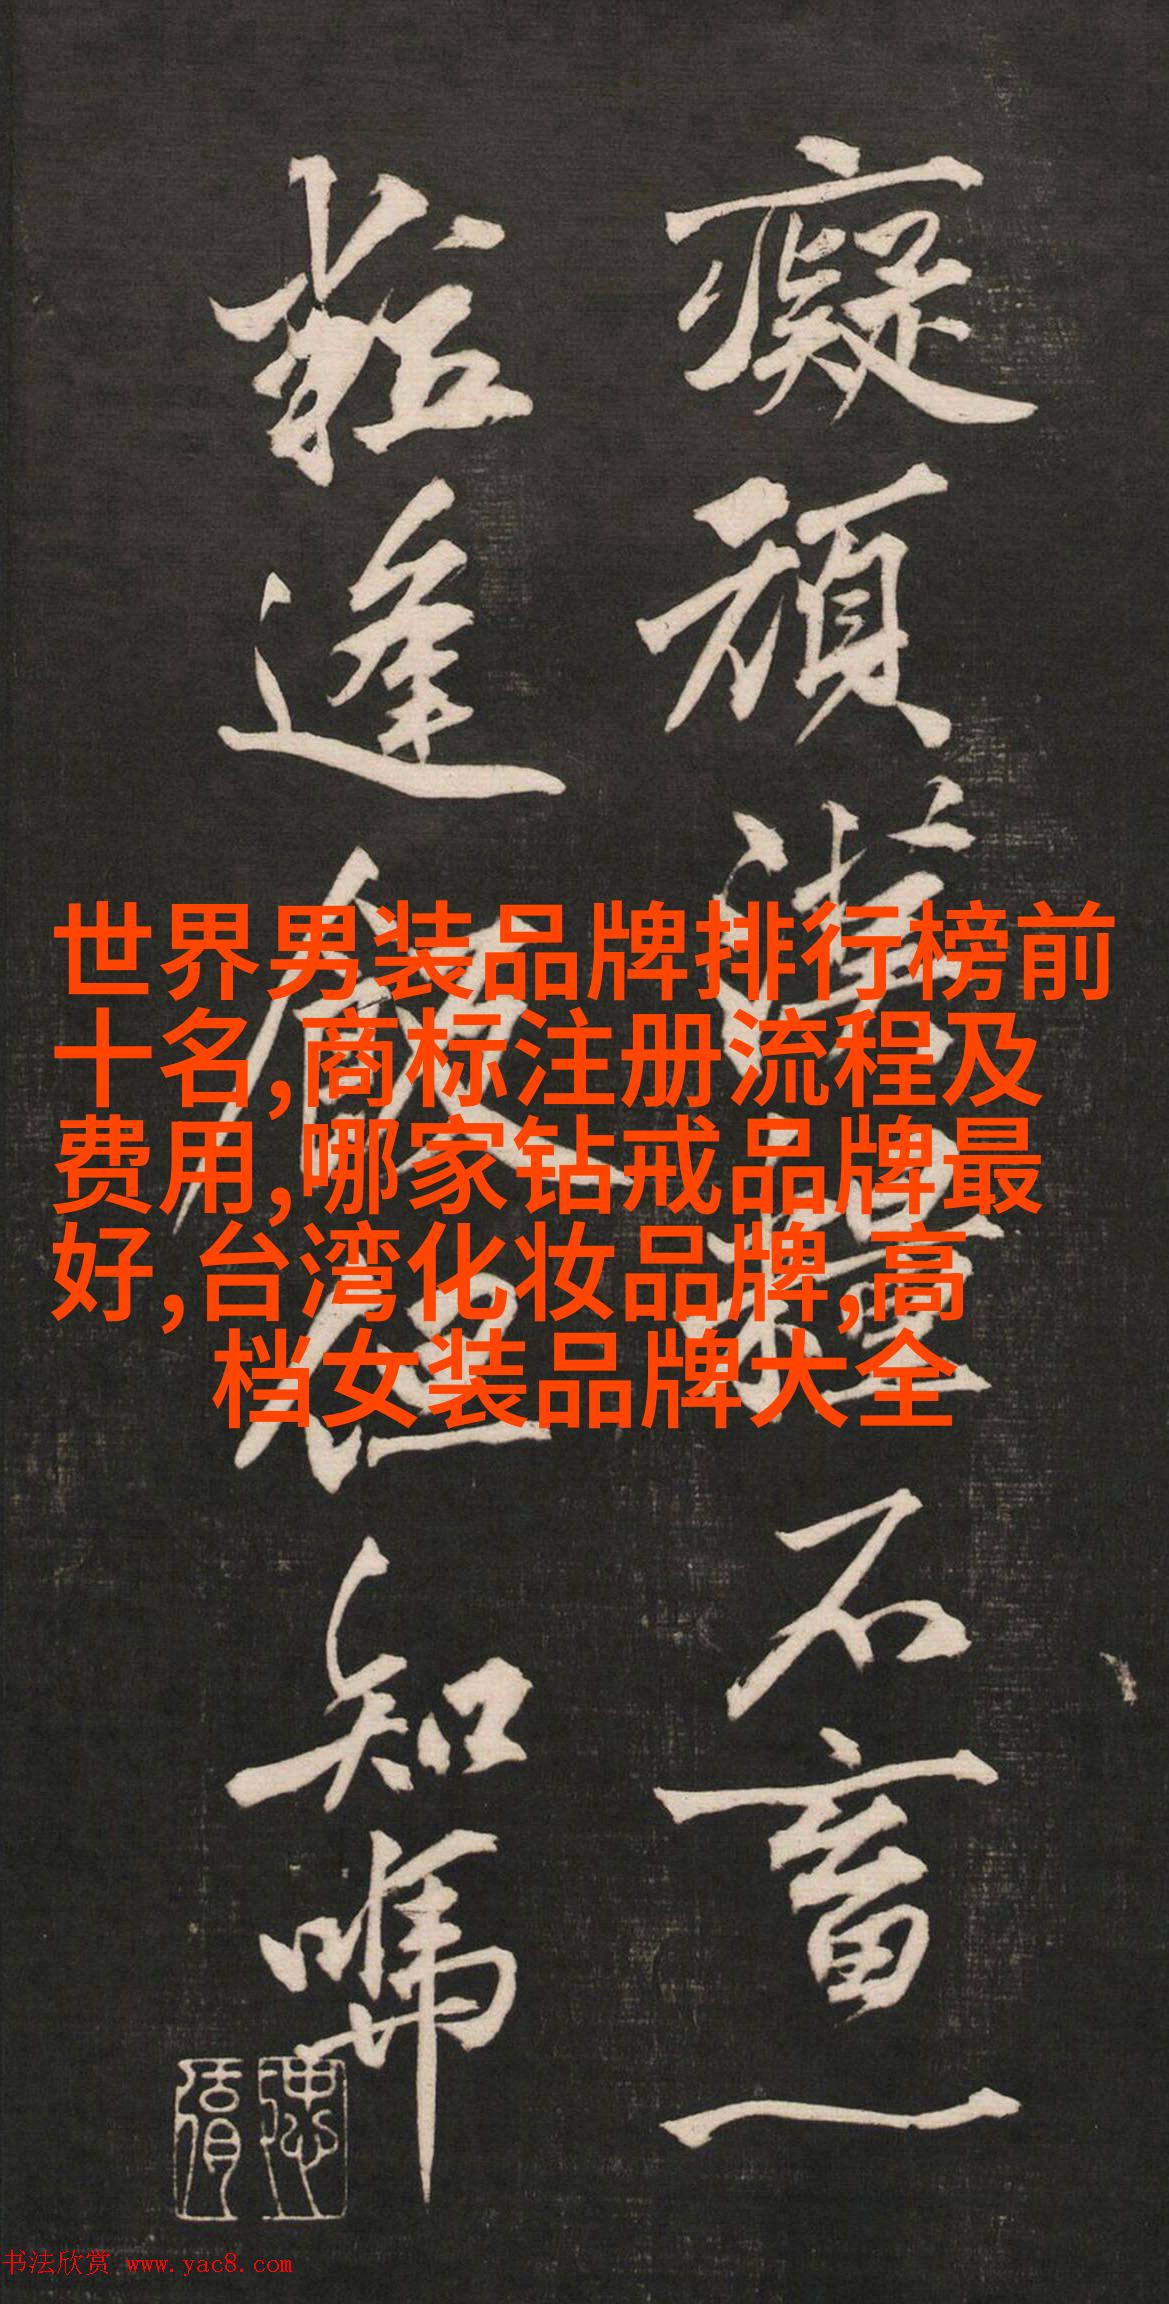 癡頑石畜一
逢知
世界男装品牌排行榜前
十名,商标注册流程及
费用,哪家钻戒品牌最
好,台湾化妆品牌,高
档女装品牌大全
书法欣赏 www.yac8.com